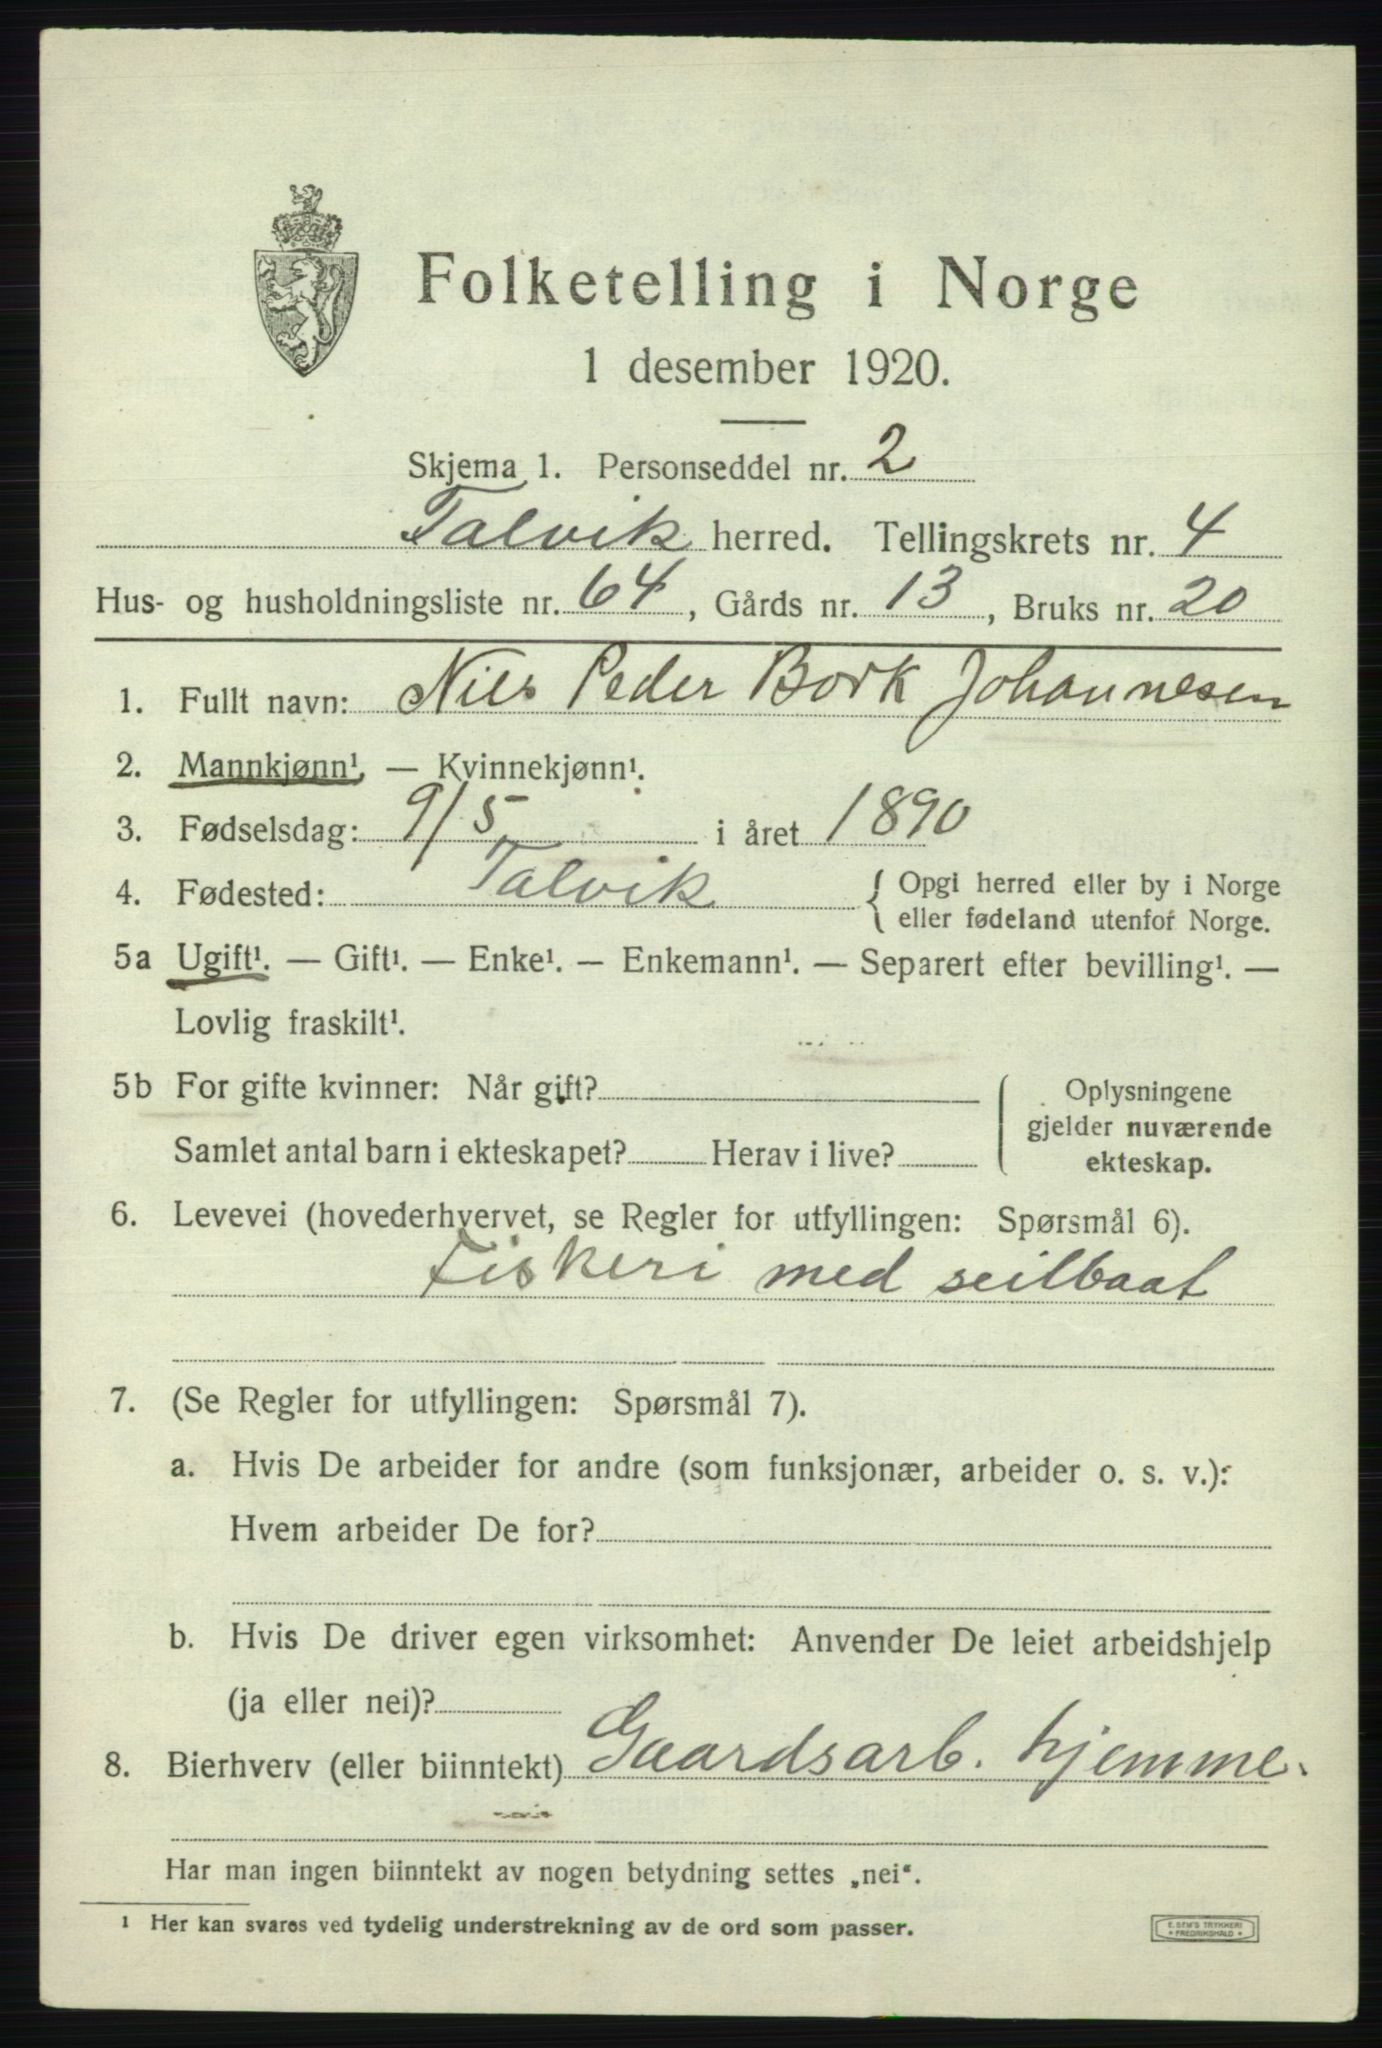 Folketelling i Norge
1 desember 1920.
Skjema 1. Personseddel nr. 2
Talvik herred. Tellingskrets nr. 4
Hus- og husholdningsliste nr. 64, Gårds nr. 13, Bruks nr. 20
1. Fullt navn: Nils Peder Bork Johannesen
2. Mannkjønn¹. — Kvinnekjønn¹.
3. Fødselsdag: 9/5 i året 1890
4. Fødested: Talvik { Opgi herred eller by i Norge
eller fødeland utenfor Norge.
5a Ugift¹. — Gift¹. — Enke¹. — Enkemann¹. — Separert efter bevilling¹. —
Lovlig fraskilt¹.
5b For gifte kvinner: Når gift?
Samlet antal barn i ekteskapet? Herav i live?
Oplysningene
gjelder nuværende
ekteskap.
6. Levevei (hovederhvervet, se Regler for utfyllingen: Spørsmål 6).
Fiskeri med seilbaat
7. (Se Regler for utfyllingen: Spørsmål 7).
a. Hvis De arbeider for andre (som funksjonær, arbeider o. s. v.):
Hvem arbeider De for?
b. Hvis De driver egen virksomhet: Anvender De leiet arbeidshjelp
(ja eller nei)?
8. Bierhverv (eller biinntekt) Gaardsarb. hjemme.
Har man ingen biinntekt av nogen betydning settes „nei“.
¹ Her kan svares ved tydelig understrekning av de ord som passer.
E. SEM'S TRYKKERI
* FREDRIKSHALD *